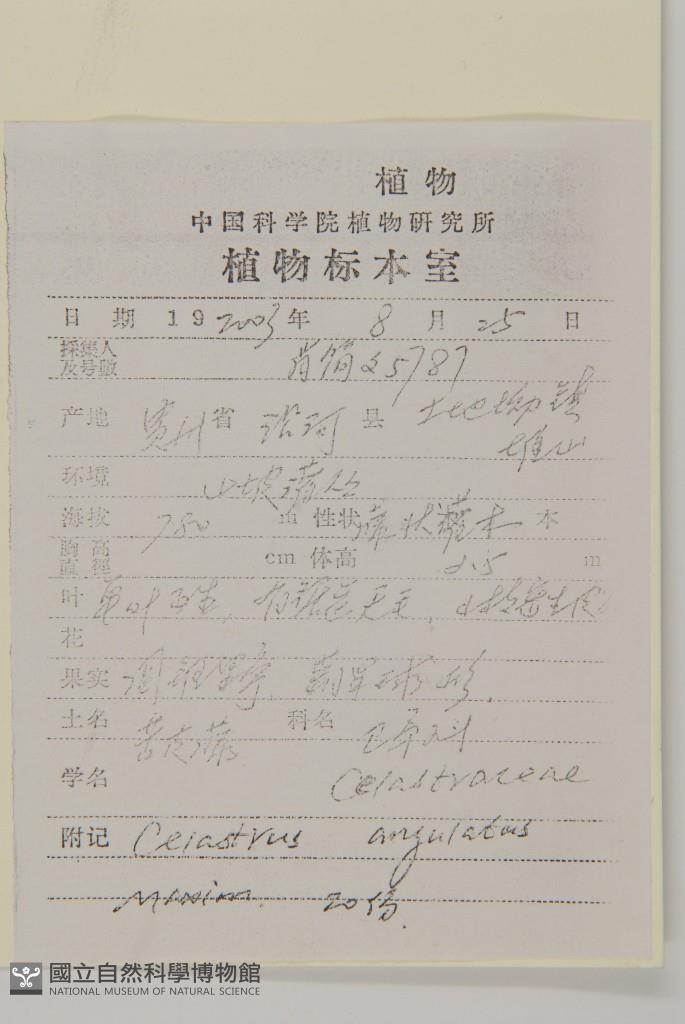 植物
中国科学院植物研究所
植物标本室
日期 19 2003年 8月 25日
採集人
及号数 5787
产地 贵州省 沿河县
环境 山坡灌丛
海拔 780 m 性状 藤状灌木 本
胸高
直徑 cm 体高 2.5 m
叶 单叶互生,
花
果实
土名 苦皮藤 科名 卫矛科
学名 Celastraceae
附记 Celastrus angulatus
Maxim. 20份.
國立自然科學博物館
NATIONAL MUSEUM OF NATURAL SCIENCE